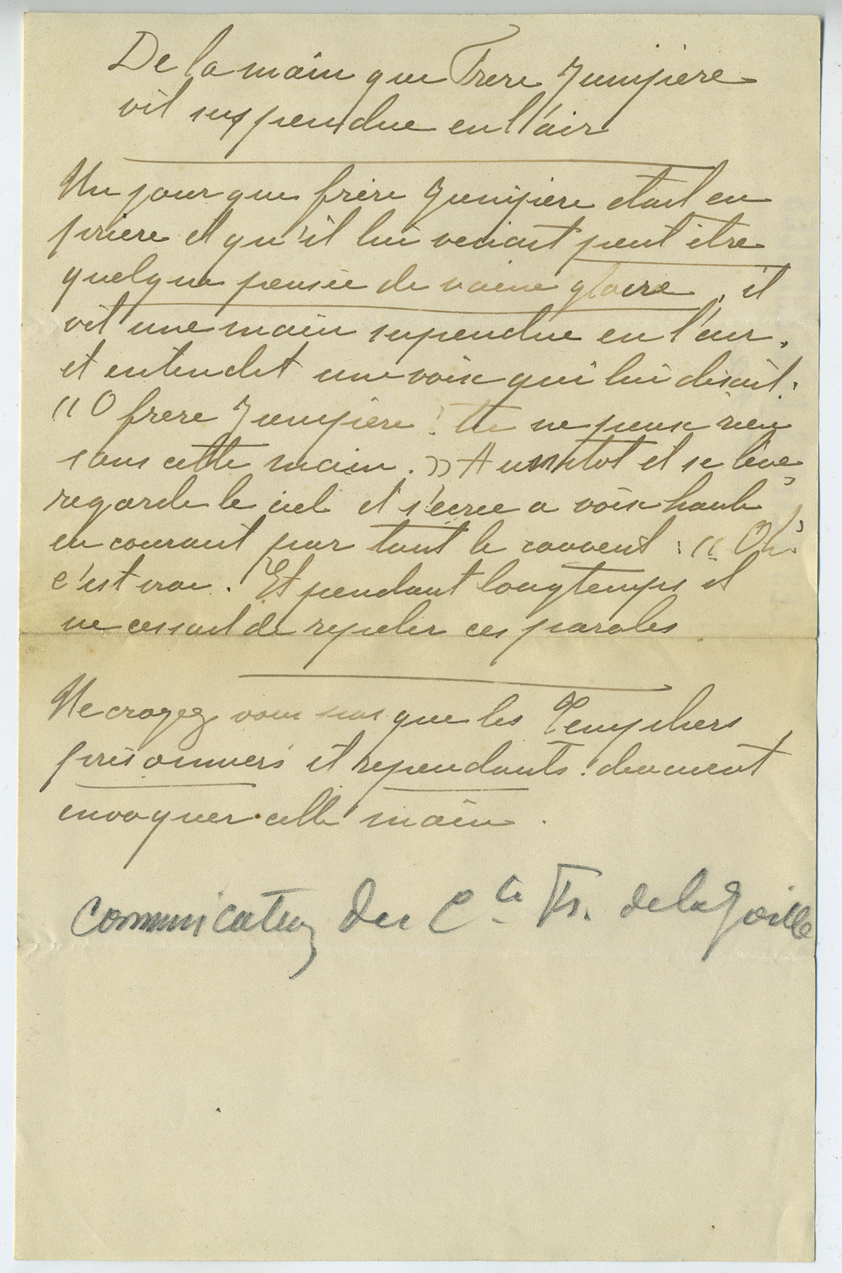 De la main que Frère Junipère
vit suspendue en l'air
Un jour que frère Junipère etait en
prière et qu'il lui venait peut être
quelque pensée de vaine gloire, il
vit une main supendue en l'air,
et entendit une voix qui lui disait:
"O frère Junipère! tu ne peux rien
sans cette main." Aussitot il se lève,
regarde le ciel et s'écrie a voix haute
en courant par tout le couvent: "Oh!
c'est vrai. Et pendant longtemps il
ne cessait de repeter ces paroles
Ne croyez vous pas que les Templiers
prisonniers et rependants devaient
envoquer cette main.
Comunication du Cte Fr. de la